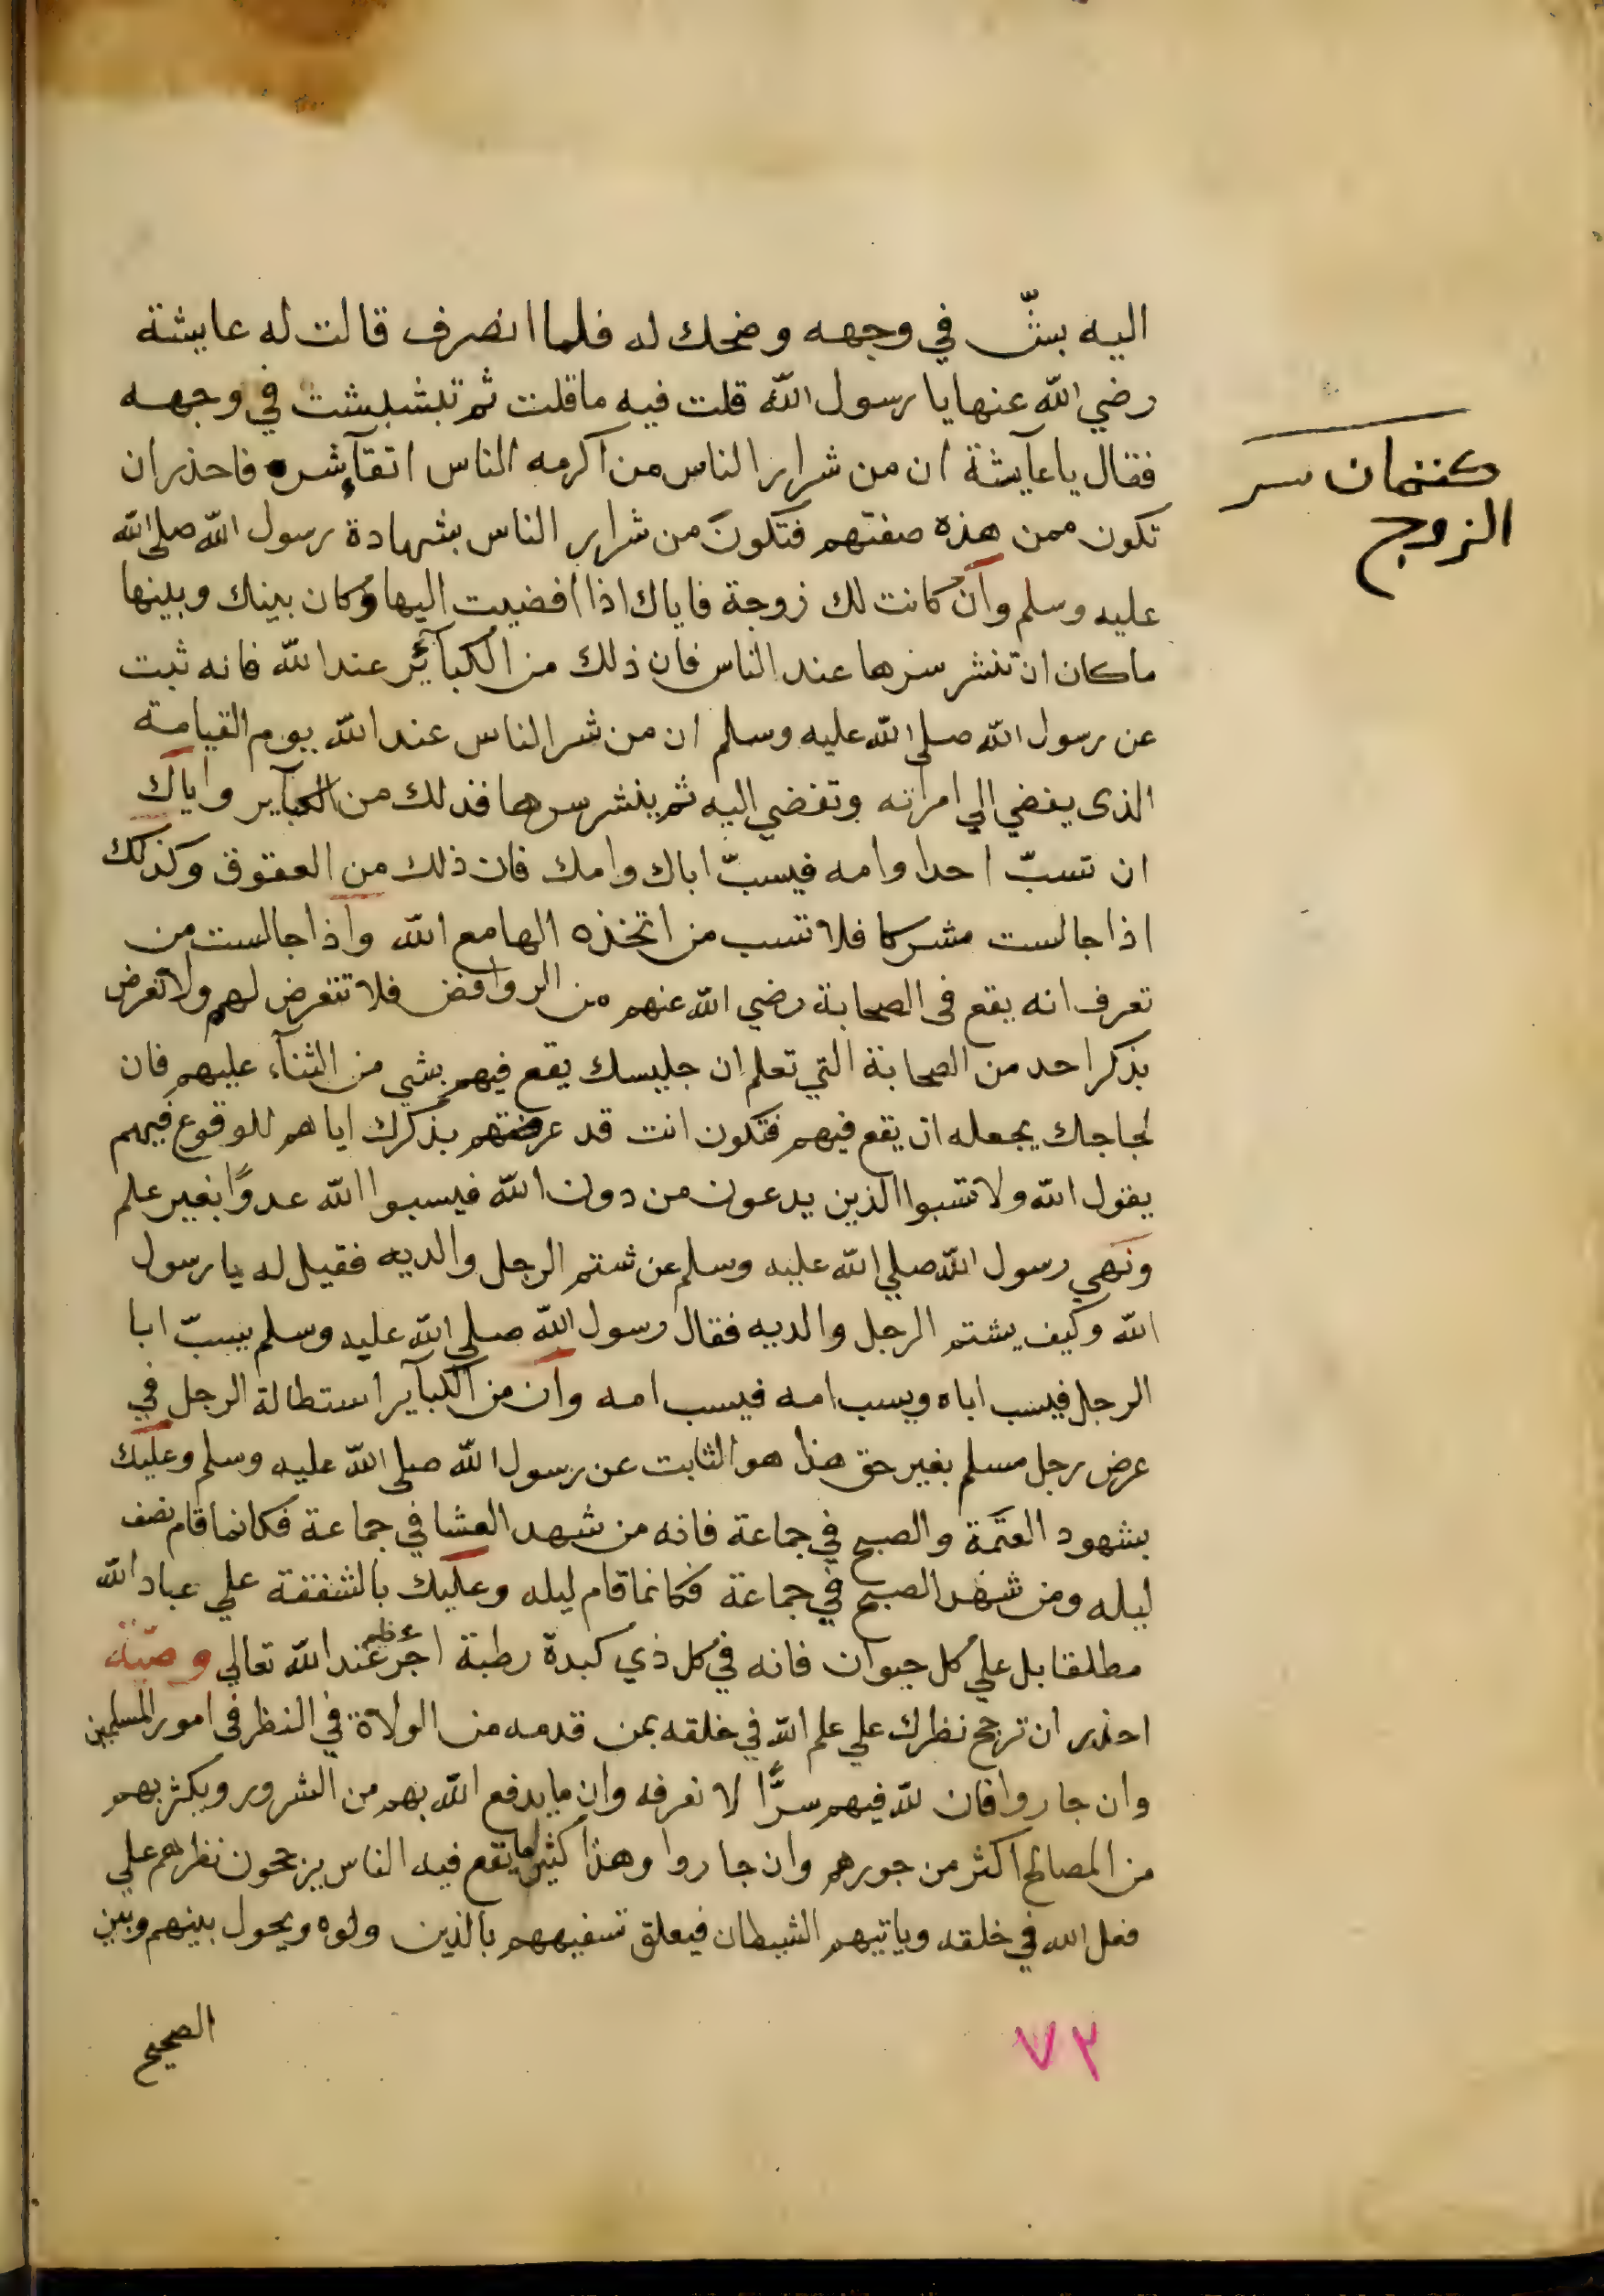 اليه بشّ في وجهه وضحك له فلما انصرف قالت له عايشة
رضي الله عنها يا رسول الله قلت فيه ما قلت ثم تبشبشت في وجهه
فقال يا عآيشة ان من شرار الناس من اكرمه الناس اتقآء شره فاحذر ان
تكون ممن هذه صفتهم فتكون من شرار الناس بشهادة رسول الله صلى الله
عليه وسلم وان كانت لك زوجة فاياك اذا افضيت اليها وكان بينك وبينها
ما كان ان تنشر سرها عند الناس فان ذلك من الكبآئر عند الله فانه ثبت
عن رسول الله صلى الله عليه وسلم ان من شر الناس عند الله يوم القيامة
الذى يفضي الي امراته وتفضي اليه ثم ينشر سرها فذلك من الكبآير واياك
ان تسبّ احدا وامه فيسبّ اباك وامك فان ذلك من العقوق وكذلك
اذا جالست مشركا فلا تسب من اتخذه الها مع الله واذا جالست من
تعرف انه يقع فى الصحابة رضي الله عنهم من الروافض فلا تتعرض لهم ولا تعرض
بذكر احد من الصحابة التي تعلم ان جليسك يقع فيهم بشي من الثنآء عليهم فان
لجاجك يجعله ان يقع فيهم فتكون انت قد عرضتهم بذكرك اياهم للوقوع فيهم
يقول الله ولا تسبوا الذين يدعون من دون الله فيسبوا الله عدوًا بغير علم
ونهي رسول الله صلي الله عليه وسلم عن شتم الرجل والديه فقيل له يا رسول
الله وكيف يشتم الرجل والديه فقال رسول الله صلى الله عليه وسلم يسبّ ابا
الرجل فيسب اباه ويسب امه فيسب امه وان من الكبآير استطالة الرجل في
عرض رجل مسلم بغير حق هذا هو الثابت عن رسول الله صلى الله عليه وسلم وعليك
بشهود العتمة والصبح في جماعة فانه من شهد العشا في جماعة فكانما قام نصف
ليله ومن شهد الصبح في جماعة فكانما قام ليله وعليك بالشفقة علي عباد الله
مطلقا بل علي كل حيوان فانه في كل ذي كبدة رطبة اجر عظيم عند الله تعالي وصيّة
احذر ان ترجح نظرك علي علم الله في خلقه بمن قدمه من الولاة في النظر فى امور المسلمين
وان جاروا فان لله فيهم سرًّا لا نعرفه وان ما يدفع الله بهم من الشرور ويكثر بهم
من المصالح اكثر من جورهم وان جاروا وهذا كثير ما يقع فيه الناس يرجحون نظرهم علي
فعل الله في خلقه وياتيهم الشيطان فيعلق تسفيههم بالذين ولوه ويحول بينهم وبين
كتمان سر
الزوج
الصحيح
٧٢